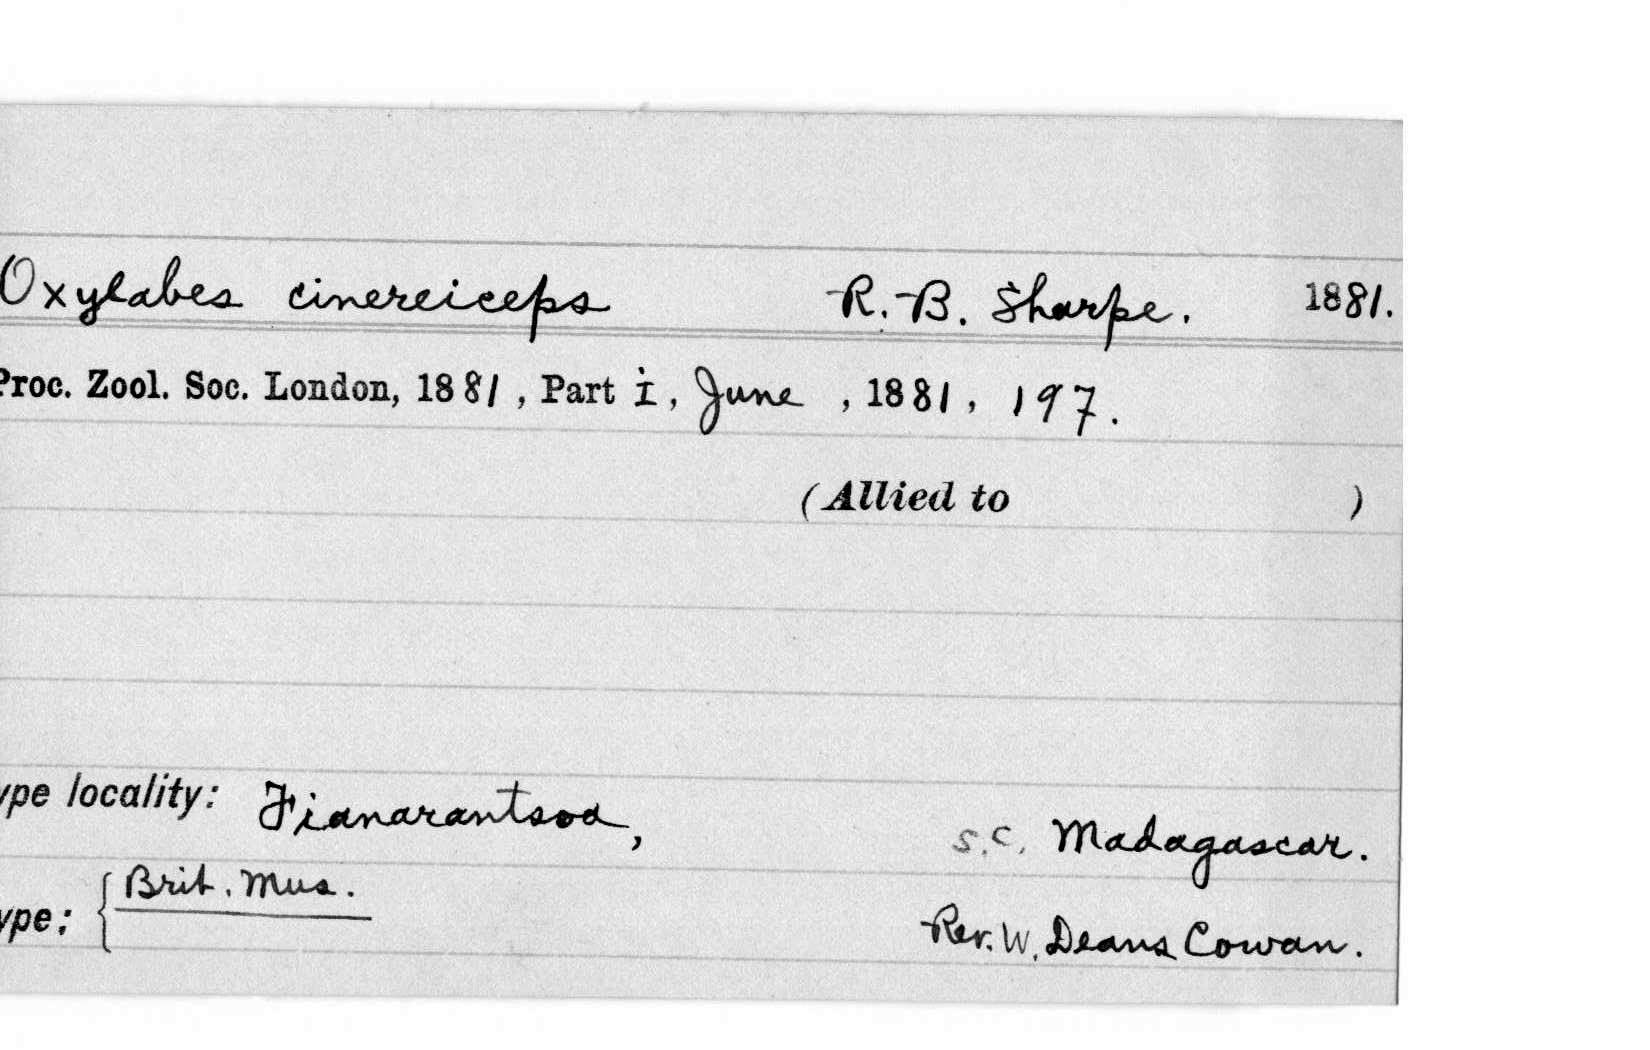 Oxylabes cinereiceps R. B. Sharpe. 1881.
Proc. Zool. Soc. London, 1881, Part i, June, 1881, 197.
(Allied to )
ype locality: Fianarantsoa, s.c. Madagascar.
Brit. Mus.
ype: { Rev. W. Deans Cowan.